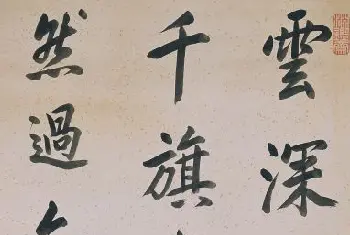 雲深
千旗
然過